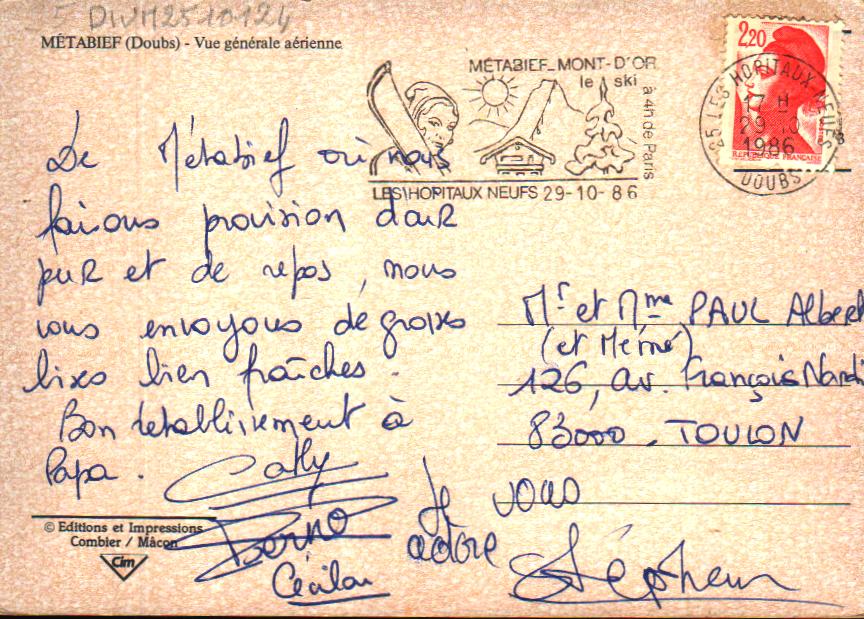 DIVM2510124
MÉTABIEF (Doubs) - Vue générale aérienne
MÉTABIEF_MONT-D'OR
le ski
à 4h de Paris
LES HOPITAUX NEUFS 29-10-86
2,20
REPUBLIQUE FRANÇAISE
25 LES HOPITAUX NEUFS
17 H
29 10
1986
DOUBS
De Métabief où nous
faisons provision d'aiR
puR et de repos, nous
vous envoyons de grosses
bises bien fraîches.
Bon rétablissement à
Papa.
Cathy
Bruno
Cécilou
Je vous
adore
Stéphan
Mr et Mme PAUL Albert
(et Mémé)
126, av. François Nardi
83000. TOULON
© Editions et Impressions
Combier / Mâcon
Cim